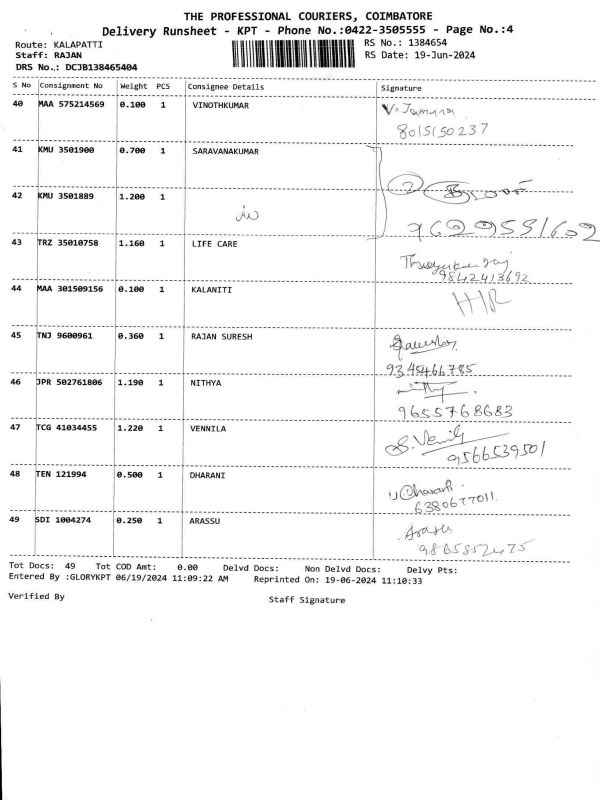 THE PROFESSIONAL COURIERS, COIMBATORE
Delivery Runsheet - KPT - Phone No.:0422-3505555 - Page No.:4
Route: KALAPATTI
RS No.: 1384654
Staff: RAJAN
RS Date: 19-Jun-2024
DRS No.: DCJB138465404
S No Consignment No Weight PCS Consignee Details Signature
40 MAA 575214569 0.100 1 VINOTHKUMAR
8015150237
41 KMU 3501900 0.700 1 SARAVANAKUMAR
42 KMU 3501889 1.200 1
9629551602
43 TRZ 35010758 1.160 1 LIFE CARE
9842413692
44 MAA 301509156 0.100 1 KALANITI
45 TNJ 9600961 0.360 1 RAJAN SURESH
9345466785
46 JPR 502761806 1.190 1 NITHYA
9655768683
47 TCG 41034455 1.220 1 VENNILA
9566539501
48 TEN 121994 0.500 1 DHARANI
6380677011
49 SDI 1004274 0.250 1 ARASSU
Tot Docs: 49 Tot COD Amt: 0.00 Delvd Docs: Non Delvd Docs: Delvy Pts:
Entered By :GLORYKPT 06/19/2024 11:09:22 AM Reprinted On: 19-06-2024 11:10:33
Verified By
Staff Signature